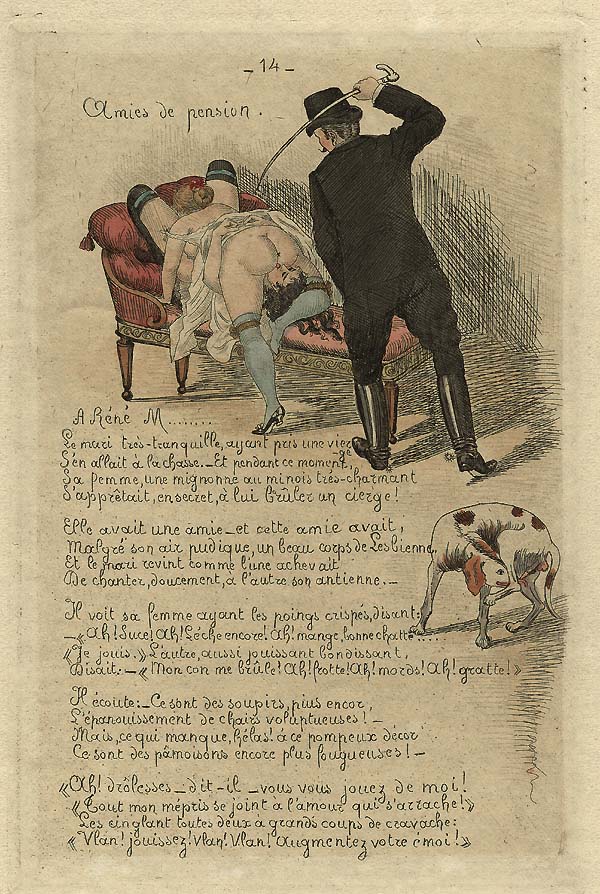 - 14 -
Amies de pension.
A Réné M........
Le mari très-tranquille, ayant pris une vierge
S'en allait à la chasse._Et pendant ce moment,
Sa femme, une mignonne au minois très-charmant
S'apprêtait, en secret, à lui brûler un cierge!
Elle avait une amie_et cette amie avait,
Malgré son air pudique, un beau corps de Lesbienne,
Et le mari revint comme l'une achevait
De chanter, doucement, à l'autre son antienne._
Il voit sa femme ayant les poings crispés, disant:
_«Ah! Suce! Ah! Lèche encore! Ah! mange, bonne chatte.....
«Je jouis.» L'autre, aussi jouissant bondissant,
Disait:_«Mon con me brûle! Ah! frotte! Ah! mords! Ah! gratte!»
Il écoute:_Ce sont des soupirs, puis encor,
L'épanouissement de chairs voluptueuses!_
Mais, ce qui manque, hélas! à ce pompeux décor
Ce sont des pâmoisons encore plus fougueuses!_
«Ah! drôlesses_dit-il_vous vous jouez de moi!
«Tout mon mépris se joint à l'amour qui s'arrache!»
Les cinglant toutes deux à grands coups de cravache:
«Vlan! jouissez! Vlan! Vlan! Augmentez votre émoi!»